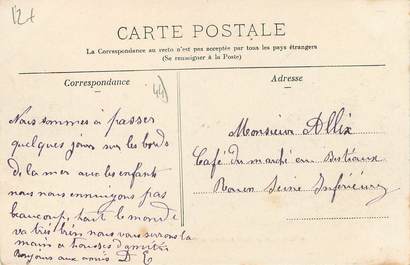 12+
CARTE POSTALE
La Correspondance au recto n'est pas acceptée par tous les pays étrangers
(Se renseigner à la Poste)
Correspondance
Adresse
44)
Nous sommes à passer
quelques jours sur les bords
de la mer avec les enfants
nous nous ennuyons pas
beaucoup, tout le monde
va très bien nous vous serrons la
main a tousses d'amitié
Bonjour aux amis D E
Monsieur Allix
Café du marché au Bestiaux
Rouen Seine Inférieure